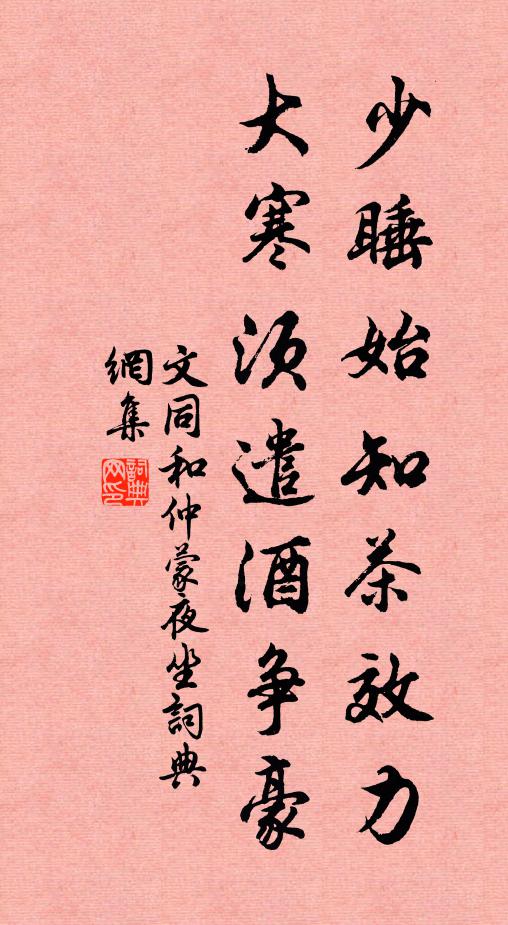 少睡始知茶效力
大寒须遣酒争豪
文同和仲蒙夜坐詞典
網集
詞典網印